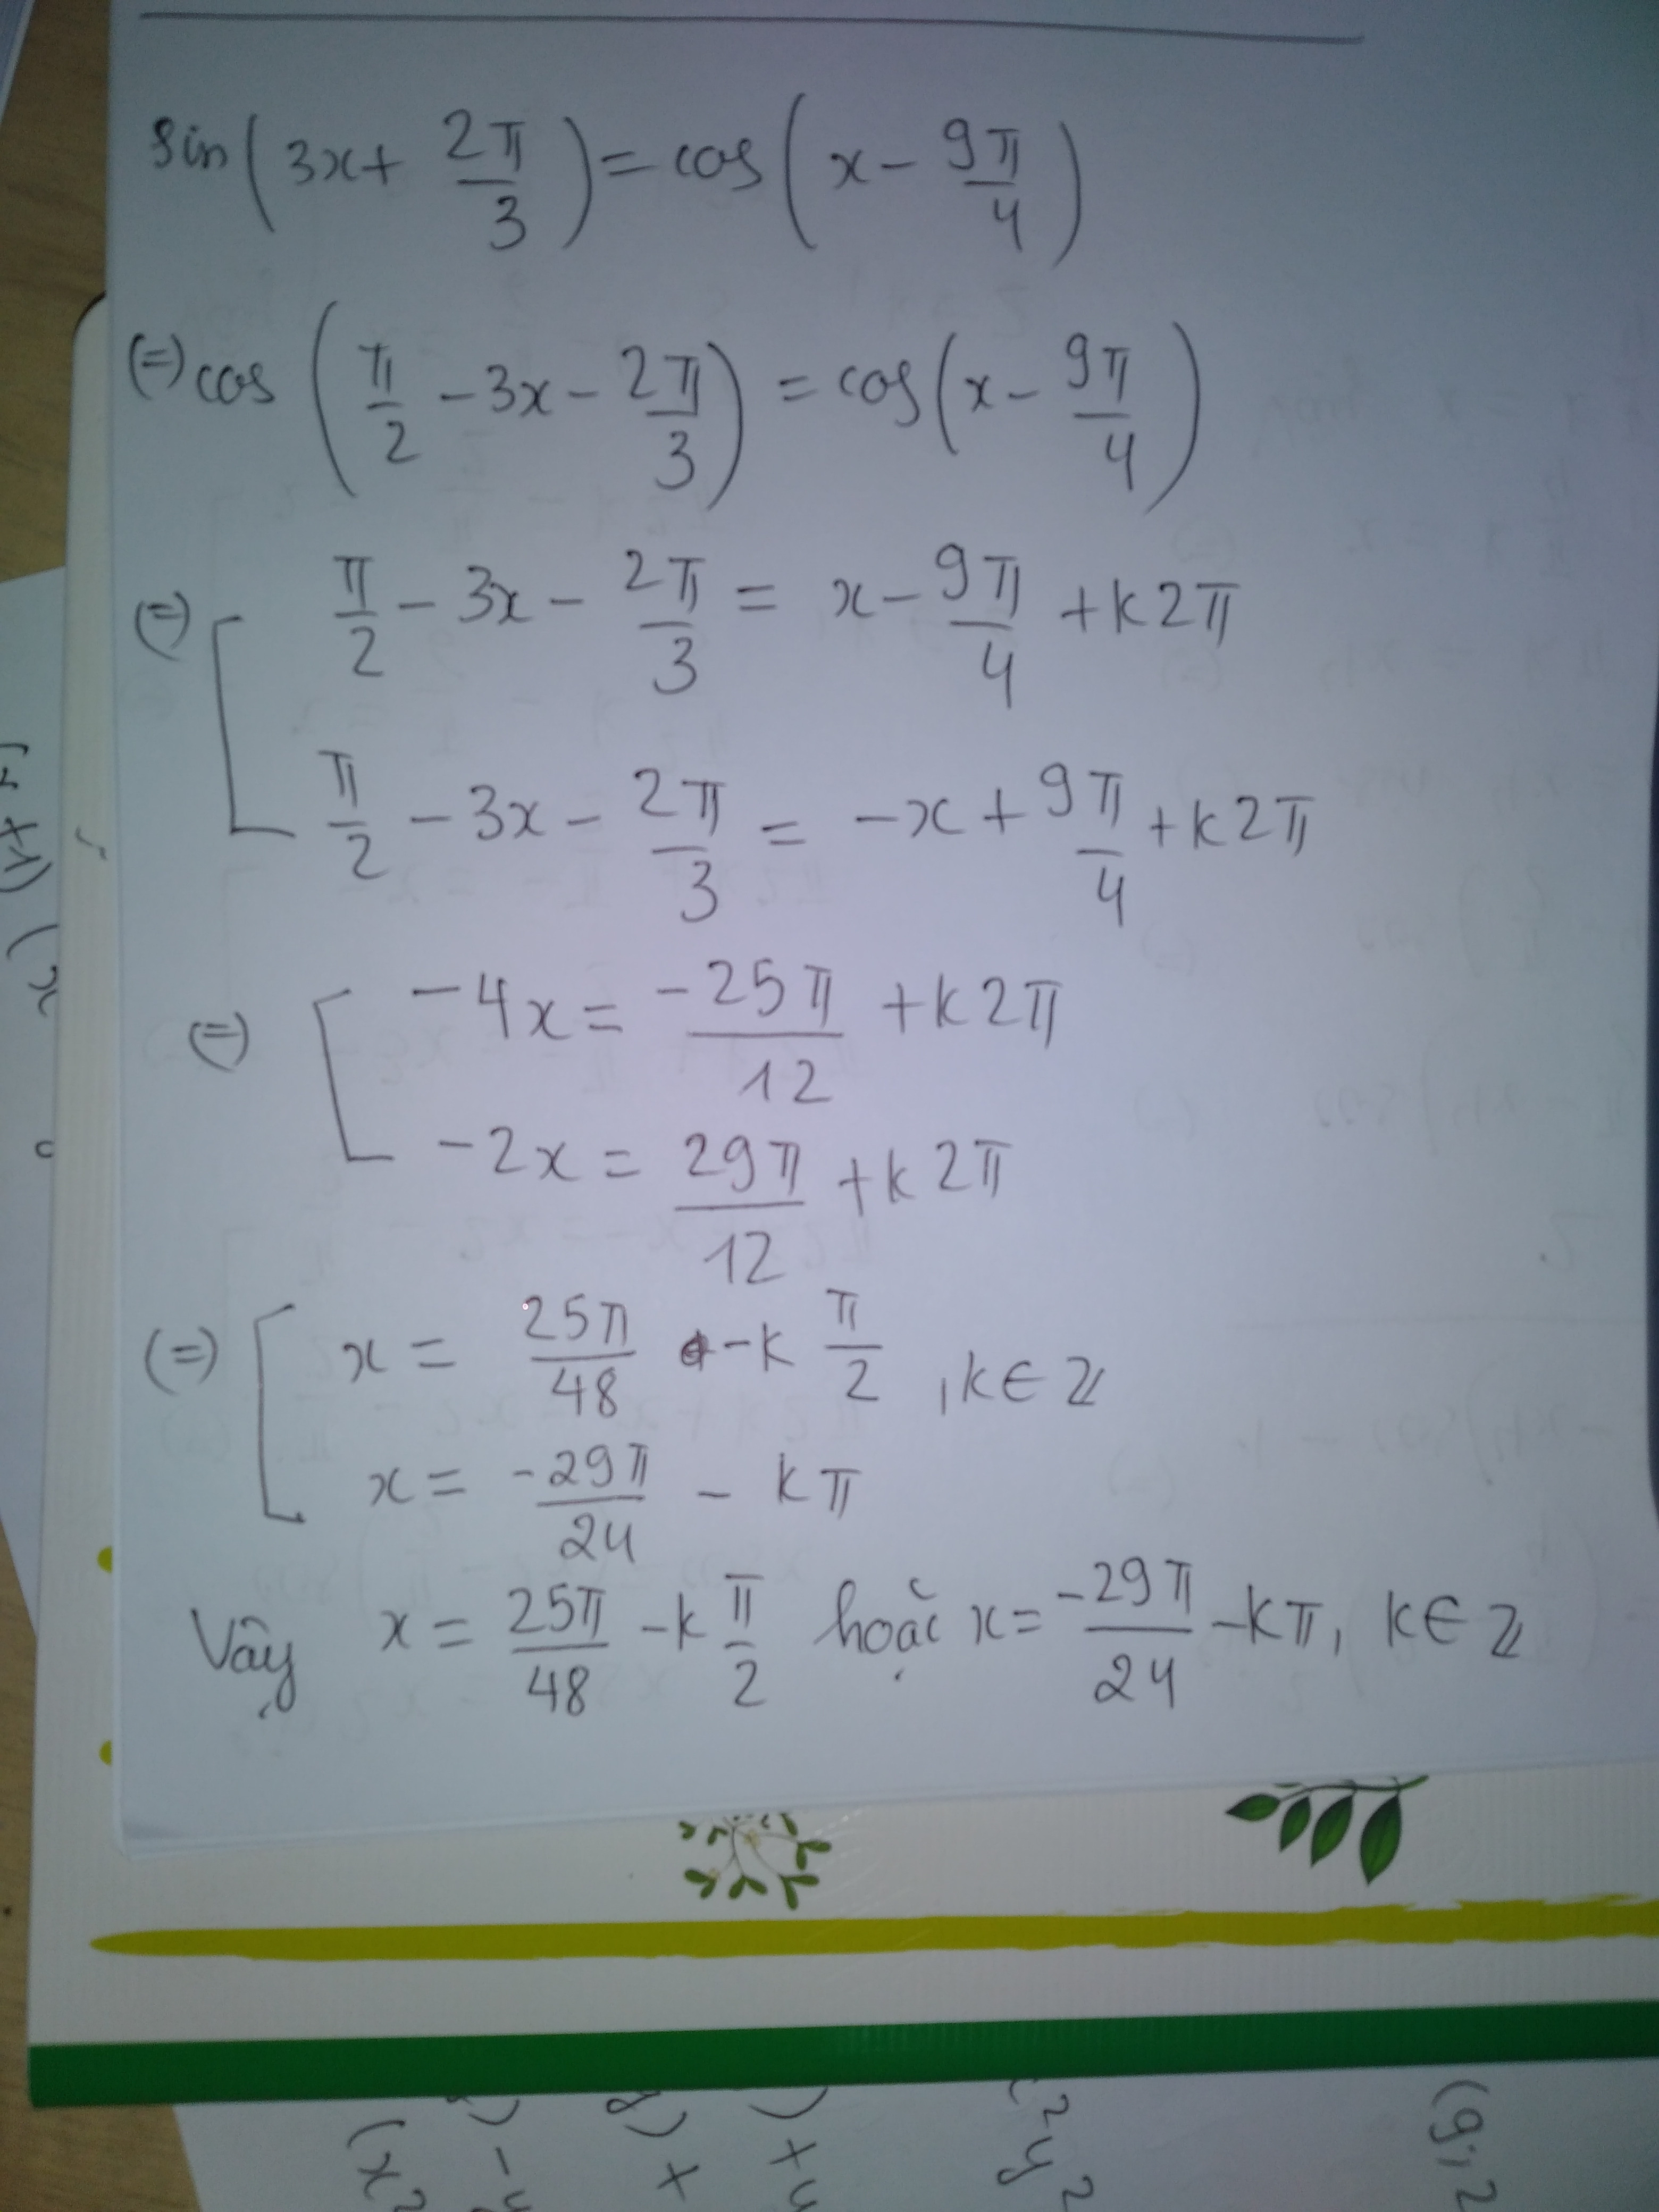 sin(3x + 2π/3) = cos(x - 9π/4)
(=) cos(π/2 - 3x - 2π/3) = cos(x - 9π/4)
(=) [ π/2 - 3x - 2π/3 = x - 9π/4 + k2π
π/2 - 3x - 2π/3 = -x + 9π/4 + k2π
(=) [ -4x = -25π/12 + k2π
-2x = 29π/12 + k2π
(=) [ x = 25π/48 - k π/2 , k ∈ Z
x = -29π/24 - kπ
Vậy x = 25π/48 - k π/2 hoặc x = -29π/24 - kπ, k ∈ Z